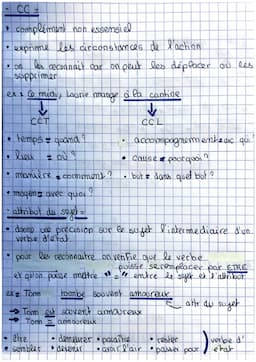 - CC =
• complément non essensiel
• exprime les circonstances de l'action
• on les reconnait car on peut les déplacer ou les
supprimer
ex : Ce midi, Laurie mange à la cantine
CCT CCL
• temps = quand ? • accompagnement = avec qui ?
• lieu = où ? • cause = pourquoi ?
• manière = comment ? • but = dans quel but ?
• moyen = avec quoi ?
- attribut du sujet =
• donne une précision sur le sujet l'intermediaire d'un
verbe d'état
• pour les reconnaitre on vérifie que le verbe
puisse se remplacer par ETRE
et qu'on puisse mettre "=" entre le sujet et l'attribut
ex = Tom tombe souvent amoureux
attr du sujet
→ Tom est souvent amoureux
→ Tom = amoureux
• être • demeurer • paraître • rester verbe d'
• sembler • devenir • avoir l'air • passer pour état